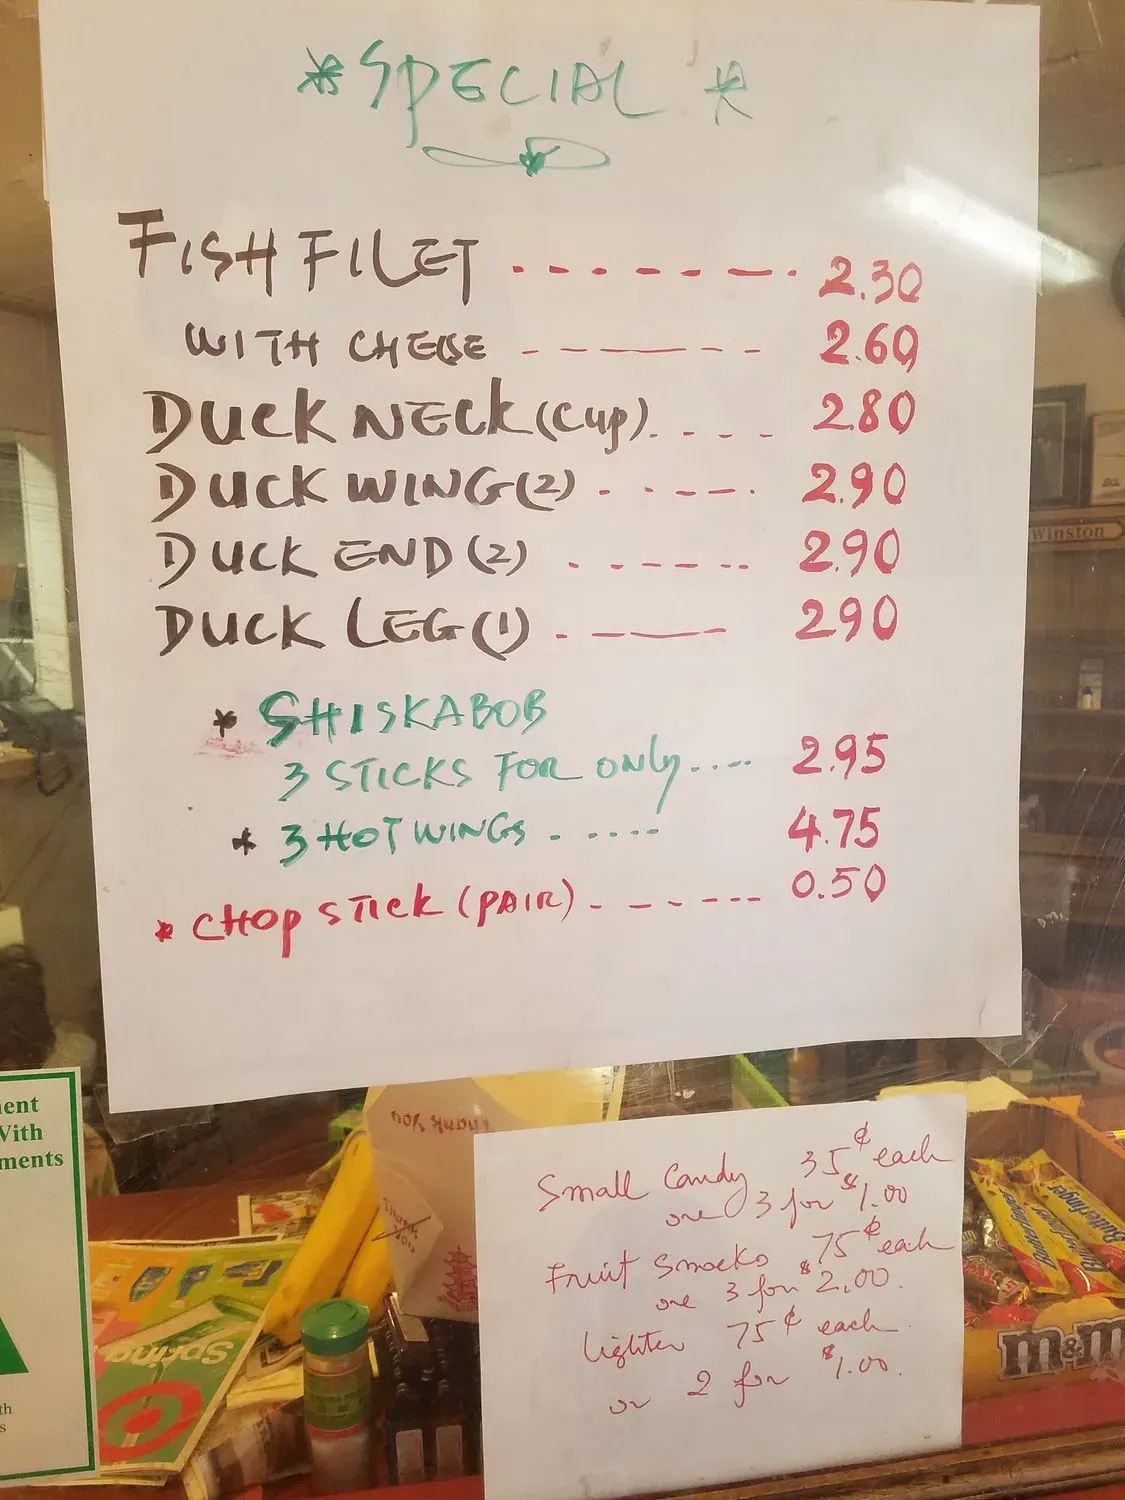 * SPECIAL *
FISH FILET ------- 2.30
WITH CHEESE ------- 2.60
DUCK NECK (Cup) .--- 2.80
DUCK WING (2) ----- 2.90
DUCK END (2) ------- 2.90
DUCK LEG (1) ---- 290
* SHISKABOB
3 STICKS FOR ONLY..... 2.95
* 3 HOT WINGS ...... 4.75
* CHOP STICK (PAIR) ------- 0.50
Winston
ent
With
ments
Thank you
THANK
YOU
Small Candy 35¢ each
or 3 for $1.00
Fruit Snacks 75¢ each
or 3 for $2.00.
Lighter 75¢ each
or 2 for $1.00.
Butterfinger
Butterfinger
m&m
Spring
th
s